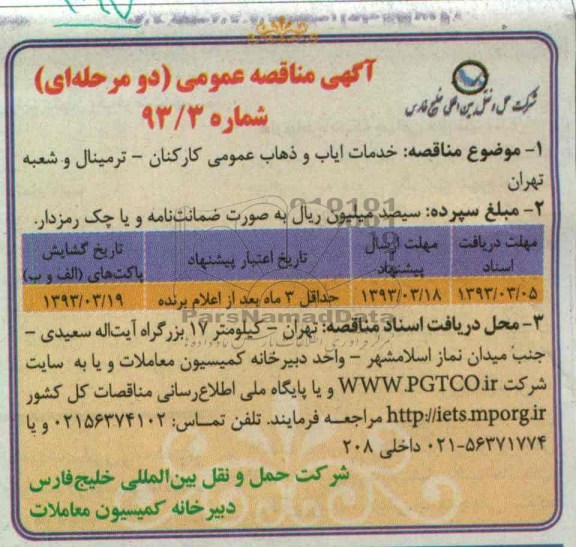 شرکت حمل و نقل بین‌المللی خلیج فارس
آگهی مناقصه عمومی (دو مرحله‌ای)
شماره ۹۳/۳
۱- موضوع مناقصه: خدمات ایاب و ذهاب عمومی کارکنان - ترمینال و شعبه
تهران
۲- مبلغ سپرده: سیصد میلیون ریال به صورت ضمانت‌نامه و یا چک رمزدار.
مهلت دریافت اسناد | مهلت ارسال پیشنهاد | تاریخ اعتبار پیشنهاد | تاریخ گشایش پاکت‌های (الف و ب)
۱۳۹۳/۰۳/۰۵ | ۱۳۹۳/۰۳/۱۸ | حداقل ۳ ماه بعد از اعلام برنده | ۱۳۹۳/۰۳/۱۹
۳- محل دریافت اسناد مناقصه: تهران - کیلومتر ۱۷ بزرگراه آیت‌اله سعیدی -
جنب میدان نماز اسلامشهر - واحد دبیرخانه کمیسیون معاملات و یا به سایت
شرکت WWW.PGTCO.ir و یا پایگاه ملی اطلاع‌رسانی مناقصات کل کشور
http://iets.mporg.ir مراجعه فرمایند. تلفن تماس: ۰۲۱۵۶۳۷۴۱۰۲ و یا
۰۲۱-۵۶۳۷۱۷۷۴ داخلی ۲۰۸
شرکت حمل و نقل بین‌المللی خلیج‌فارس
دبیرخانه کمیسیون معاملات
ParsNamadData